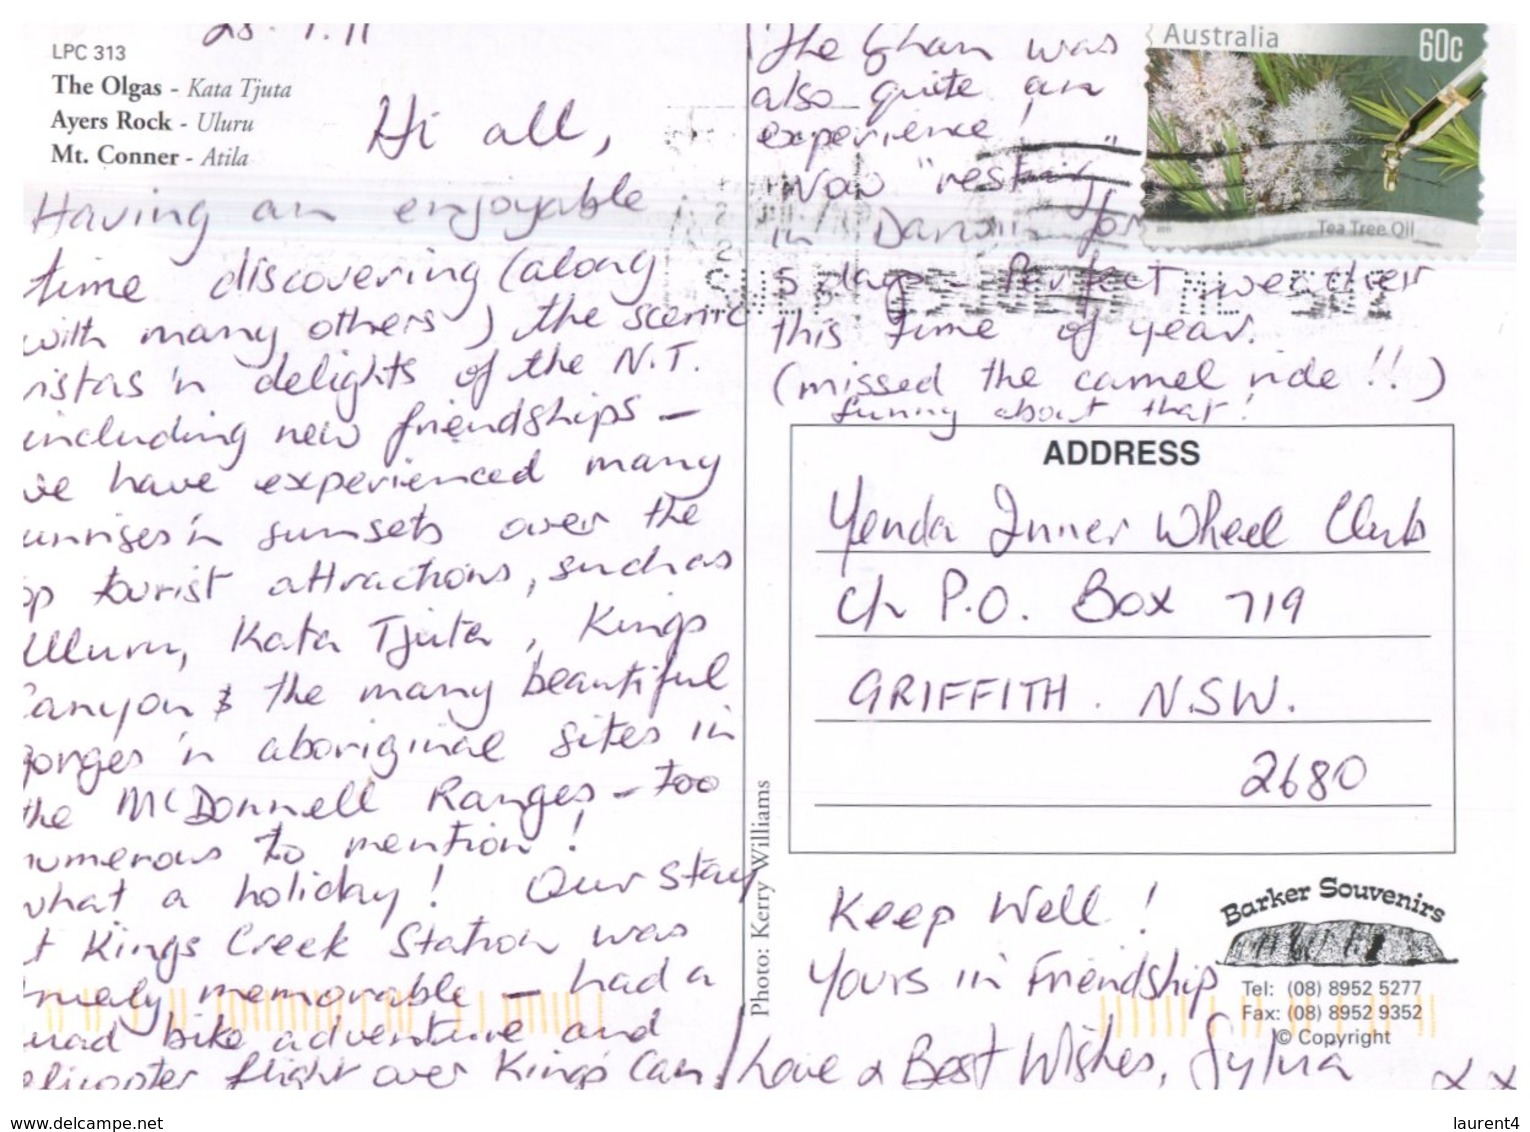 LPC 313
The Olgas - Kata Tjuta
Ayers Rock - Uluru
Mt. Conner - Atila
Hi all,
Having an enjoyable
time discovering (along
with many others) the scenic
vistas 'n delights of the N.T.
including new friendships –
we have experienced many
sunrises 'n sunsets over the
top tourist attractions, such as
Uluru, Kata Tjuta, Kings
Canyon & the many beautiful
gorges 'n aboriginal sites in
the McDonnell Ranges – too
numerous to mention!
what a holiday! Our stay
at Kings Creek Station was
truely memorable – had a
quad bike adventure and
helicopter flight over Kings Can
The Ghan was
also quite an
experience!
Now "resting"
in Darwin for
5 days – Perfect weather
this time of year.
(missed the camel ride!!)
funny about that!
Australia 60c
Tea Tree Oil
ADDRESS
Yenda Inner Wheel Club
c/- P.O. Box 719
GRIFFITH. N.S.W.
2680
Keep Well!
Yours in Friendship
Love & Best Wishes, Sylvia xx
Photo: Kerry Williams
Barker Souvenirs
Tel: (08) 8952 5277
Fax: (08) 8952 9352
© Copyright
www.delcampe.net
laurent4